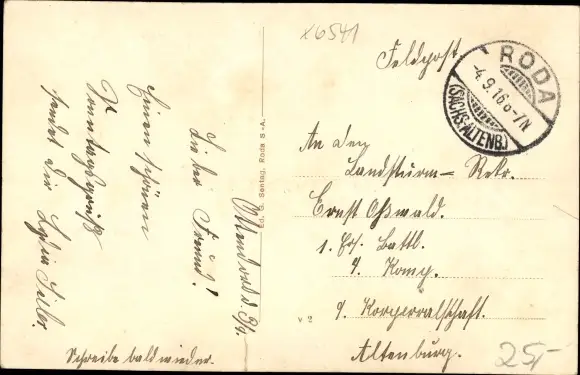 x6541
Feldpost
RODA
-4.9.16 6-7N
(SACHS.-ALTENB.)
An den
Landsturm- Rekr.
Ernst Oßwald.
1. Ers. Battl.
4. Komp.
4. Korporalschaft.
Altenburg.
25,-
v 2
Ed. G. Sontag, Roda S.-A.
Ottendorf d. 3/9.
Lieber Freund!
Einen schönen
Sonntagsgruß
sendet dir
Schreibe bald wieder.